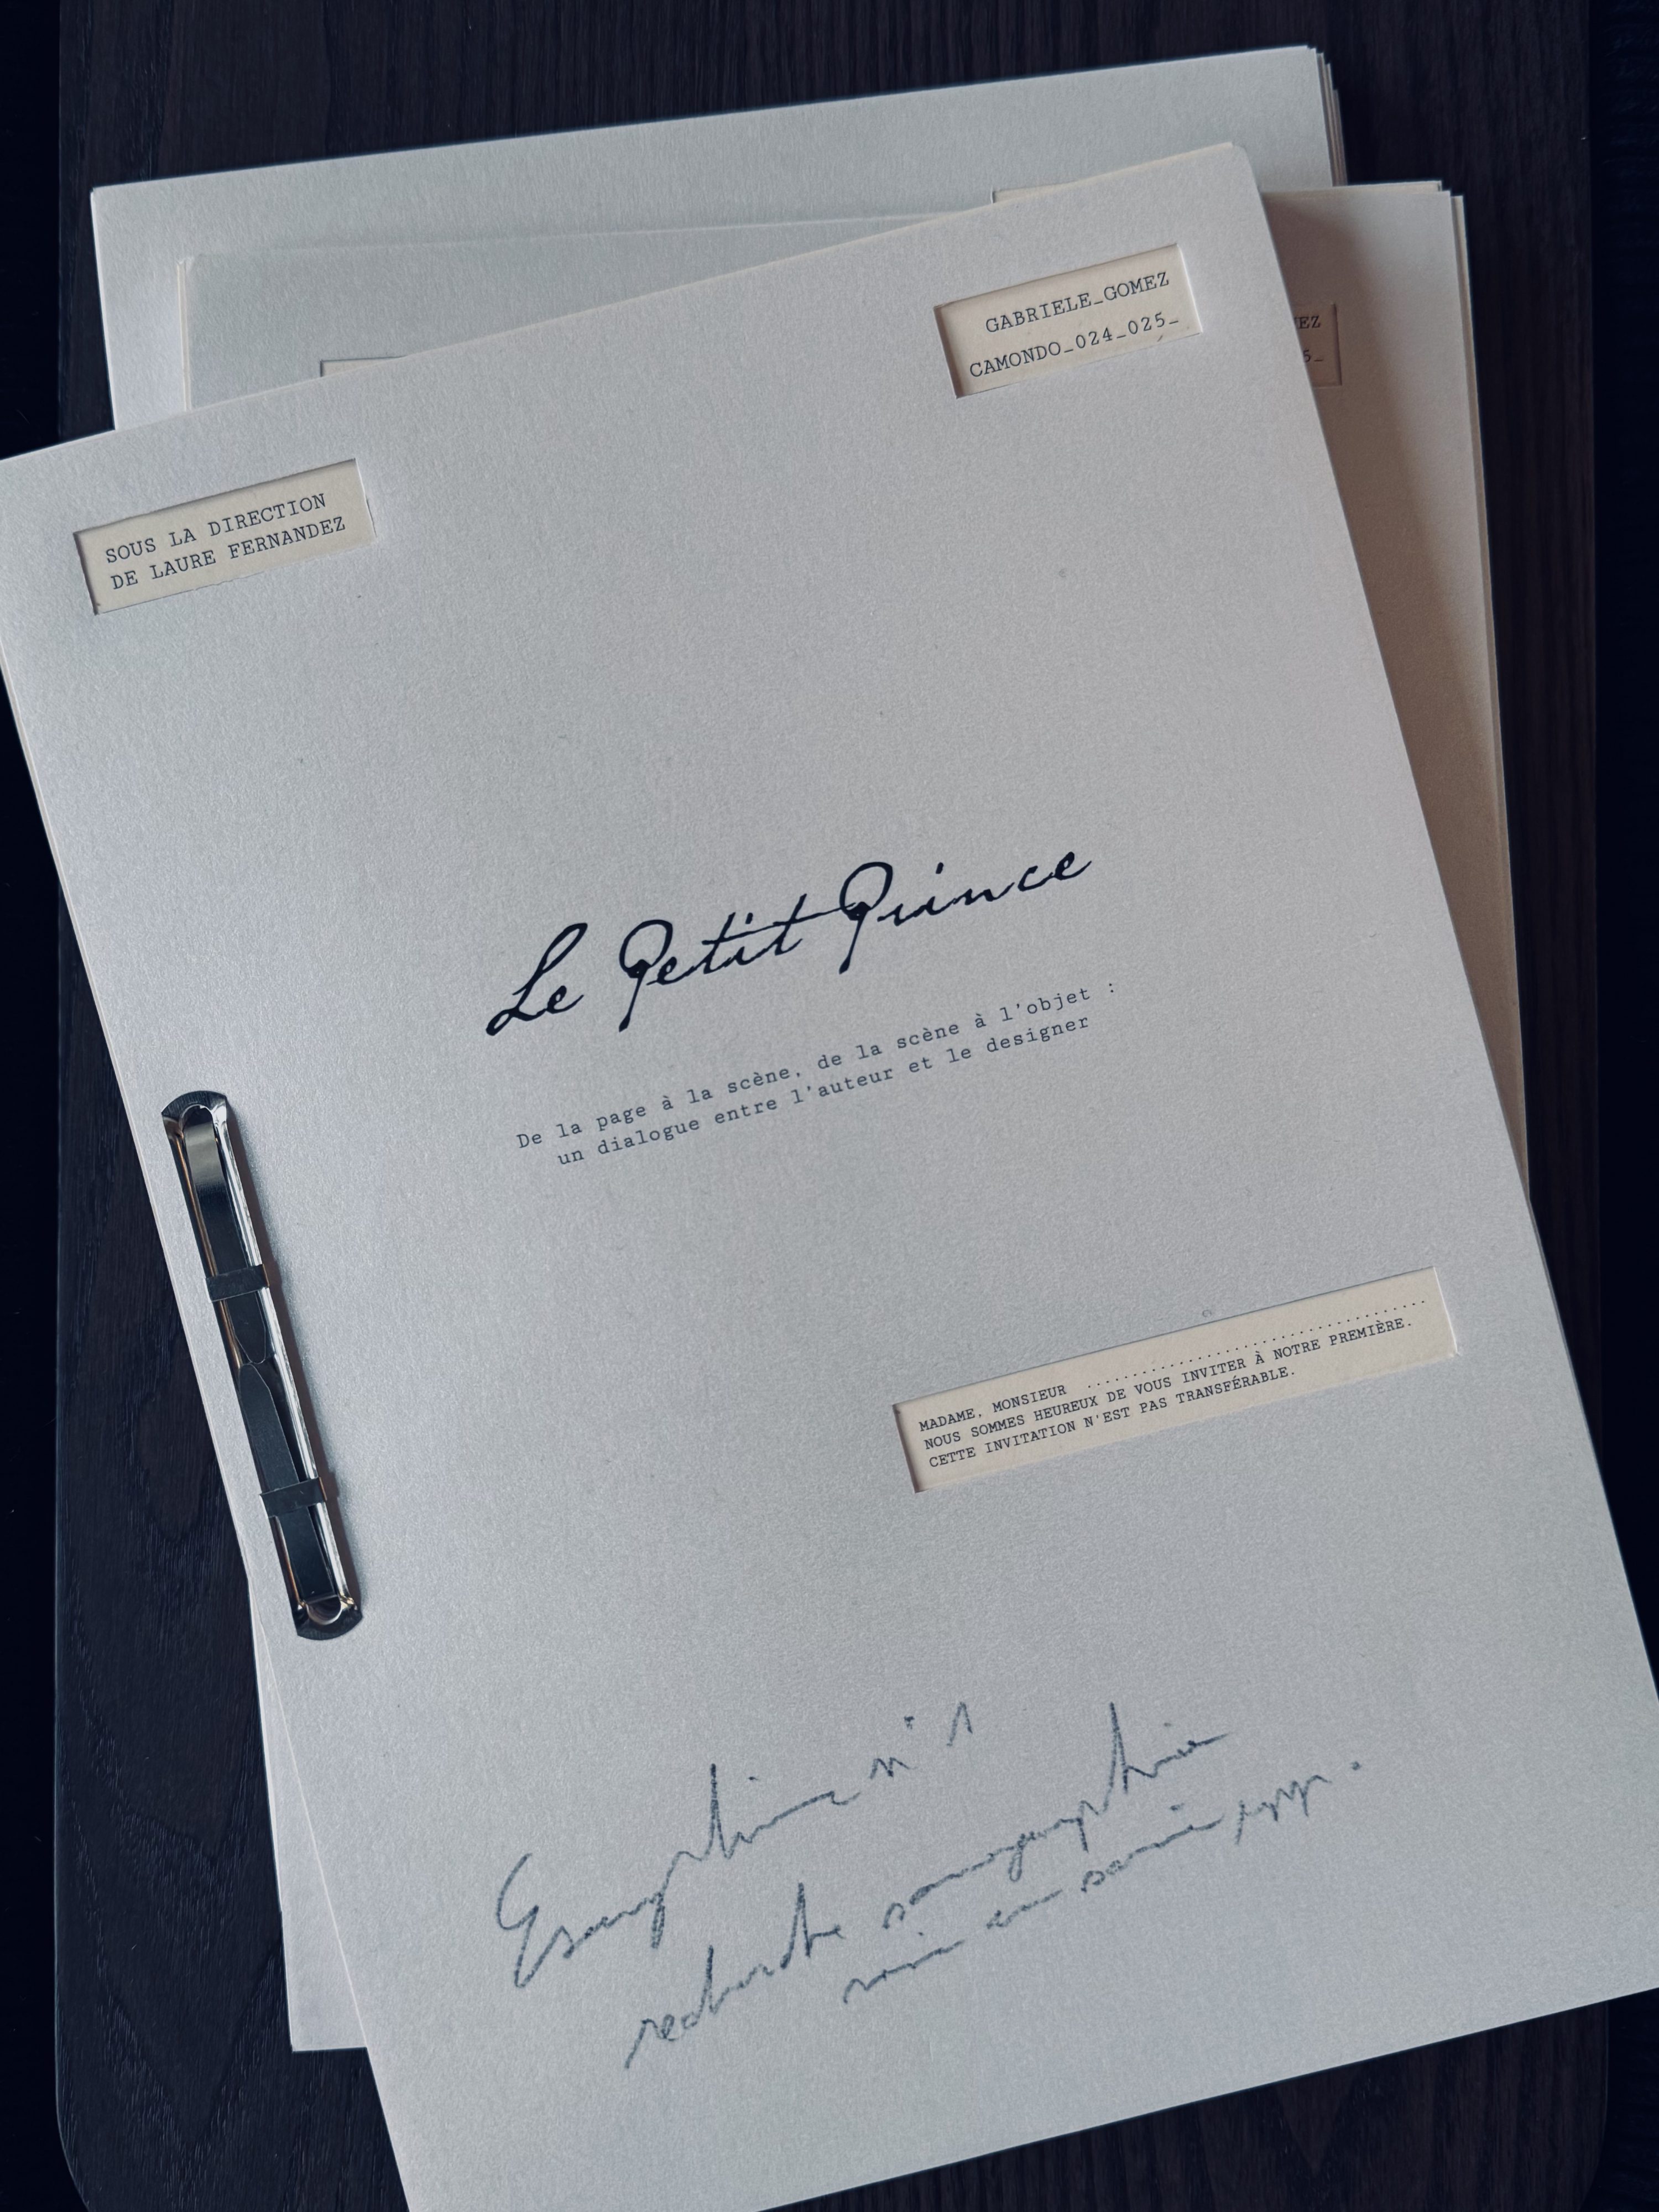 GABRIELE_GOMEZ
CAMONDO_024_025_
EZ
5_
SOUS LA DIRECTION
DE LAURE FERNANDEZ
Le Petit Prince
De la page à la scène, de la scène à l'objet :
un dialogue entre l'auteur et le designer
MADAME, MONSIEUR ........................................
NOUS SOMMES HEUREUX DE VOUS INVITER À NOTRE PREMIÈRE.
CETTE INVITATION N'EST PAS TRANSFÉRABLE.
n° 1
recherche scénographie